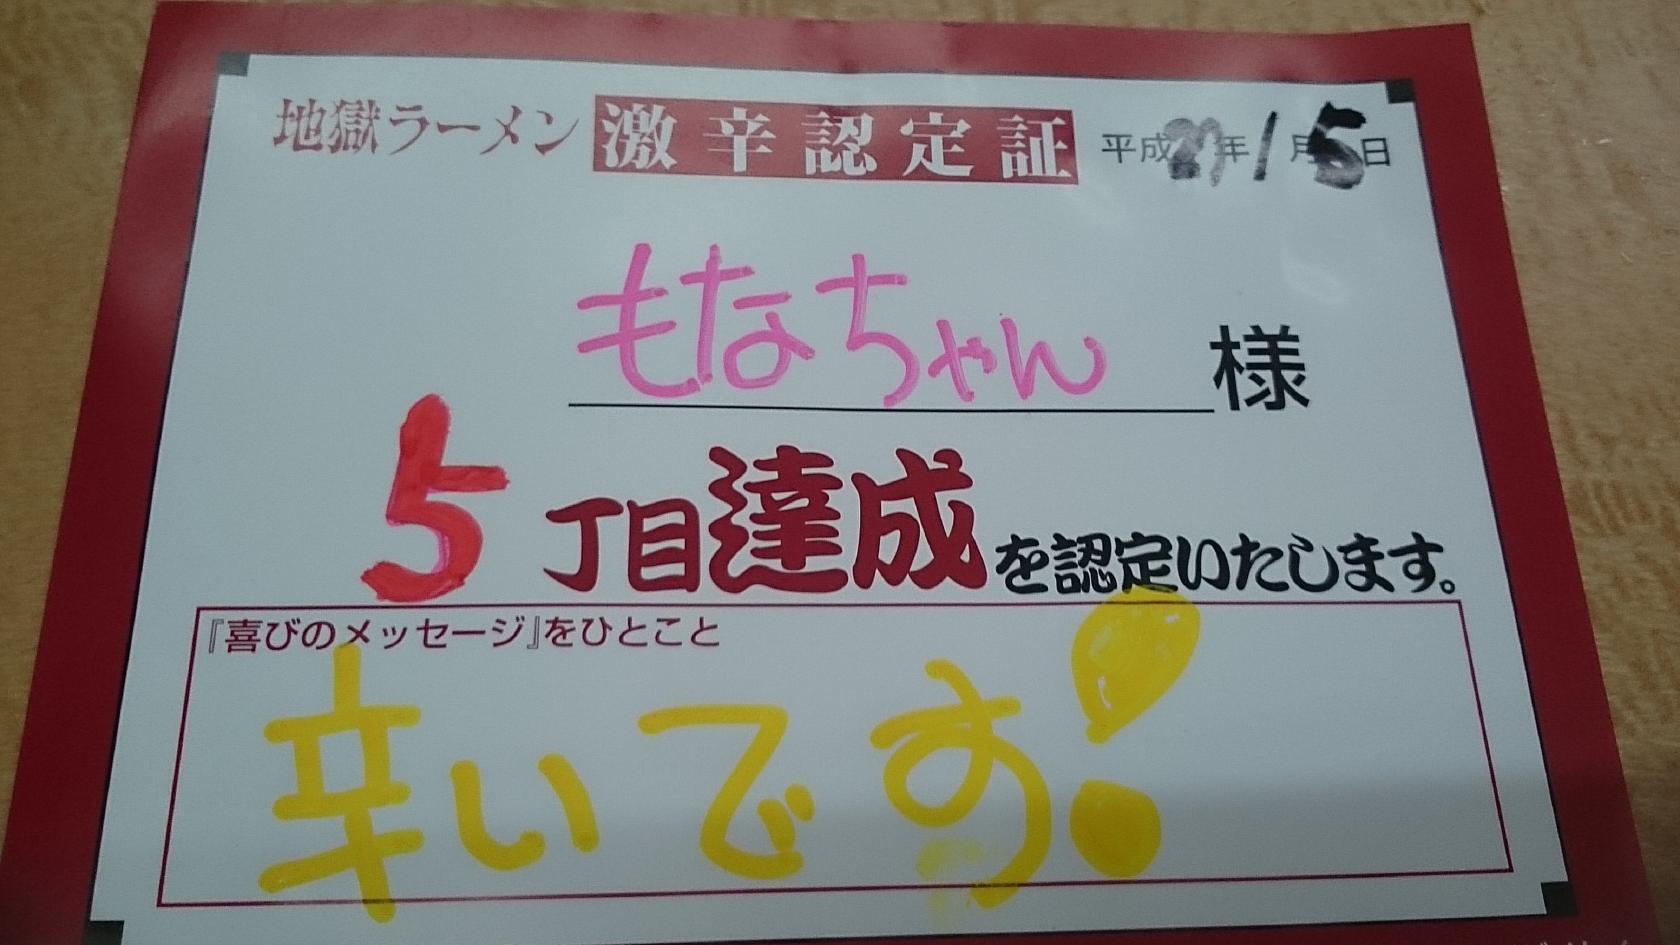 地獄ラーメン 激辛認定証 平成27年1月5日
もなちゃん 様
5丁目達成を認定いたします。
『喜びのメッセージ』をひとこと
辛いです!